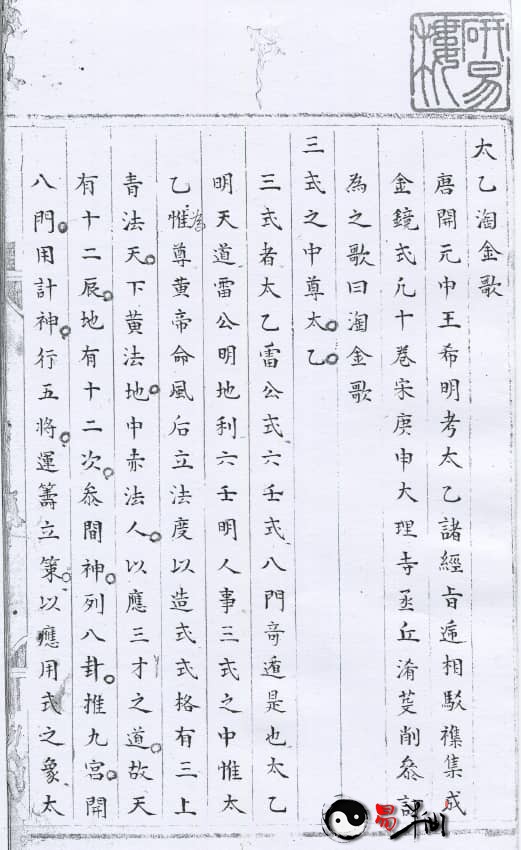 太乙淘金歌
唐開元中王希明考太乙諸經旨遁相駁襍集成
金鏡式凡十卷宋庚申大理寺丞丘濬芟削叅詳
為之歌曰淘金歌
三式之中尊太乙
三式者太乙雷公式六壬式八門奇遁是也太乙
明天道雷公明地利六壬明人事三式之中惟太
乙惟為尊黄帝命風后立法度以造式式格有三上
青法天下黄法地中赤法人以應三才之道故天
有十二辰地有十二次叅間神列八卦推九宮開
八門用計神行五將運籌立策以應用式之象太
研易樓
易